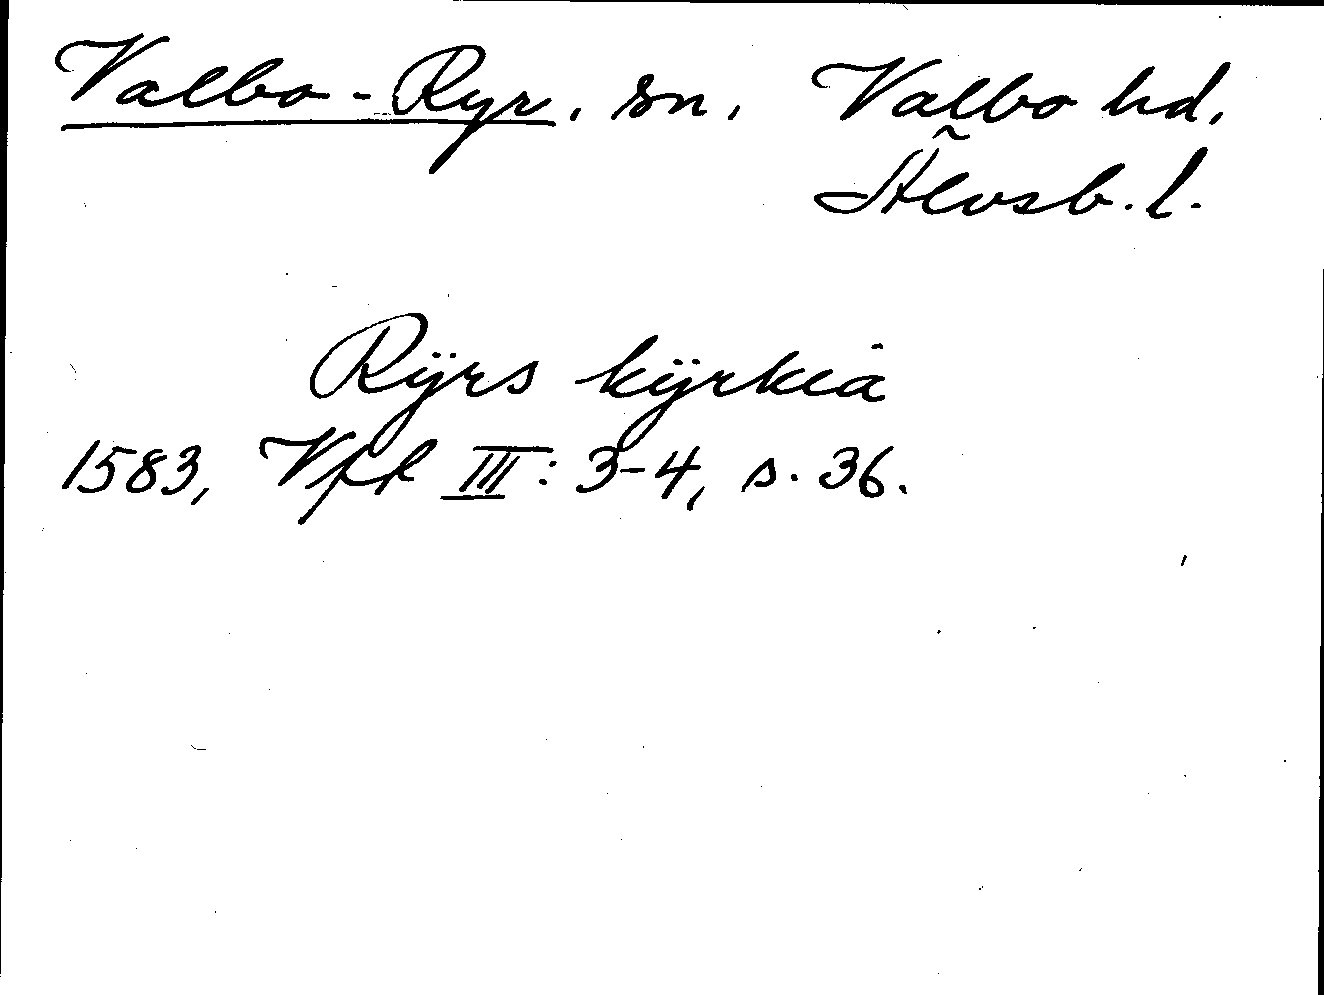 Valbo-Ryr, sn, Valbo hd,
Älvsb. l.
Rÿrs kÿrkia
1583, Vfr III: 3-4, s. 36.